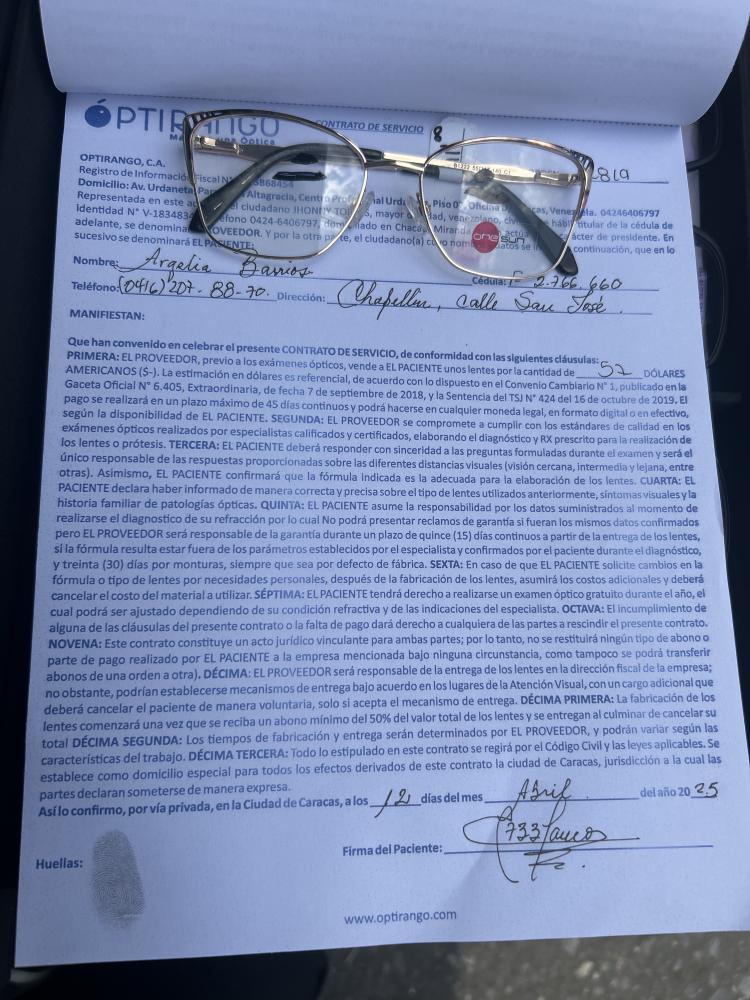 ÓPTIRANGO
CONTRATO DE SERVICIO
8
819
OPTIRANGO, C.A.
B1222 55
Registro de Información Fiscal N°
Domicilio: Av. Urdaneta, Altagracia, Centro Urda Piso Oficina Venezuela. 04246406797
Representada en este el ciudadano JHONNY mayor venezolano, hábil titular de la cédula de
Identidad N° V-1834834 0424-6406797, en Chacao Miranda ácter de presidente. En
adelante, se denomina OVEEDOR. Y por la otra parte, el ciudadano(a) cuyo datos se continuación, que en lo
one sun
sucesivo se denominará EL PACIENTE:
Nombre: Argelia Barrios Cédula: 2.766.660
Teléfono: (0416) 207-88-70. Dirección: Chapellin, calle San José.
MANIFIESTAN:
Que han convenido en celebrar el presente CONTRATO DE SERVICIO, de conformidad con las siguientes cláusulas:
PRIMERA: EL PROVEEDOR, previo a los exámenes ópticos, vende a EL PACIENTE unos lentes por la cantidad de 57 DÓLARES
AMERICANOS (S-). La estimación en dólares es referencial, de acuerdo con lo dispuesto en el Convenio Cambiario N° 1, publicado en la
Gaceta Oficial N° 6.405, Extraordinaria, de fecha 7 de septiembre de 2018, y la Sentencia del TSJ N° 424 del 16 de octubre de 2019. El
pago se realizará en un plazo máximo de 45 días continuos y podrá hacerse en cualquier moneda legal, en formato digital o en efectivo,
según la disponibilidad de EL PACIENTE. SEGUNDA: EL PROVEEDOR se compromete a cumplir con los estándares de calidad en los
exámenes ópticos realizados por especialistas calificados y certificados, elaborando el diagnóstico y RX prescrito para la realización de
los lentes o prótesis. TERCERA: EL PACIENTE deberá responder con sinceridad a las preguntas formuladas durante el examen y será el
único responsable de las respuestas proporcionadas sobre las diferentes distancias visuales (visión cercana, intermedia y lejana, entre
otras). Asimismo, EL PACIENTE confirmará que la fórmula indicada es la adecuada para la elaboración de los lentes. CUARTA: EL
PACIENTE declara haber informado de manera correcta y precisa sobre el tipo de lentes utilizados anteriormente, síntomas visuales y la
historia familiar de patologías ópticas. QUINTA: EL PACIENTE asume la responsabilidad por los datos suministrados al momento de
realizarse el diagnostico de su refracción por lo cual No podrá presentar reclamos de garantía si fueran los mismos datos confirmados
pero EL PROVEEDOR será responsable de la garantía durante un plazo de quince (15) días continuos a partir de la entrega de los lentes,
si la fórmula resulta estar fuera de los parámetros establecidos por el especialista y confirmados por el paciente durante el diagnóstico,
y treinta (30) días por monturas, siempre que sea por defecto de fábrica. SEXTA: En caso de que EL PACIENTE solicite cambios en la
fórmula o tipo de lentes por necesidades personales, después de la fabricación de los lentes, asumirá los costos adicionales y deberá
cancelar el costo del material a utilizar. SÉPTIMA: EL PACIENTE tendrá derecho a realizarse un examen óptico gratuito durante el año, el
cual podrá ser ajustado dependiendo de su condición refractiva y de las indicaciones del especialista. OCTAVA: El incumplimiento de
alguna de las cláusulas del presente contrato o la falta de pago dará derecho a cualquiera de las partes a rescindir el presente contrato.
NOVENA: Este contrato constituye un acto jurídico vinculante para ambas partes; por lo tanto, no se restituirá ningún tipo de abono o
parte de pago realizado por EL PACIENTE a la empresa mencionada bajo ninguna circunstancia, como tampoco se podrá transferir
abonos de una orden a otra). DÉCIMA: EL PROVEEDOR será responsable de la entrega de los lentes en la dirección fiscal de la empresa;
no obstante, podrían establecerse mecanismos de entrega bajo acuerdo en los lugares de la Atención Visual, con un cargo adicional que
deberá cancelar el paciente de manera voluntaria, solo si acepta el mecanismo de entrega. DÉCIMA PRIMERA: La fabricación de los
lentes comenzará una vez que se reciba un abono mínimo del 50% del valor total de los lentes y se entregan al culminar de cancelar su
total DÉCIMA SEGUNDA: Los tiempos de fabricación y entrega serán determinados por EL PROVEEDOR, y podrán variar según las
características del trabajo. DÉCIMA TERCERA: Todo lo estipulado en este contrato se regirá por el Código Civil y las leyes aplicables. Se
establece como domicilio especial para todos los efectos derivados de este contrato la ciudad de Caracas, jurisdicción a la cual las
partes declaran someterse de manera expresa.
Así lo confirmo, por vía privada, en la Ciudad de Caracas, a los 12 días del mes Abril del año 2025
Huellas:
Firma del Paciente:
www.optirango.com